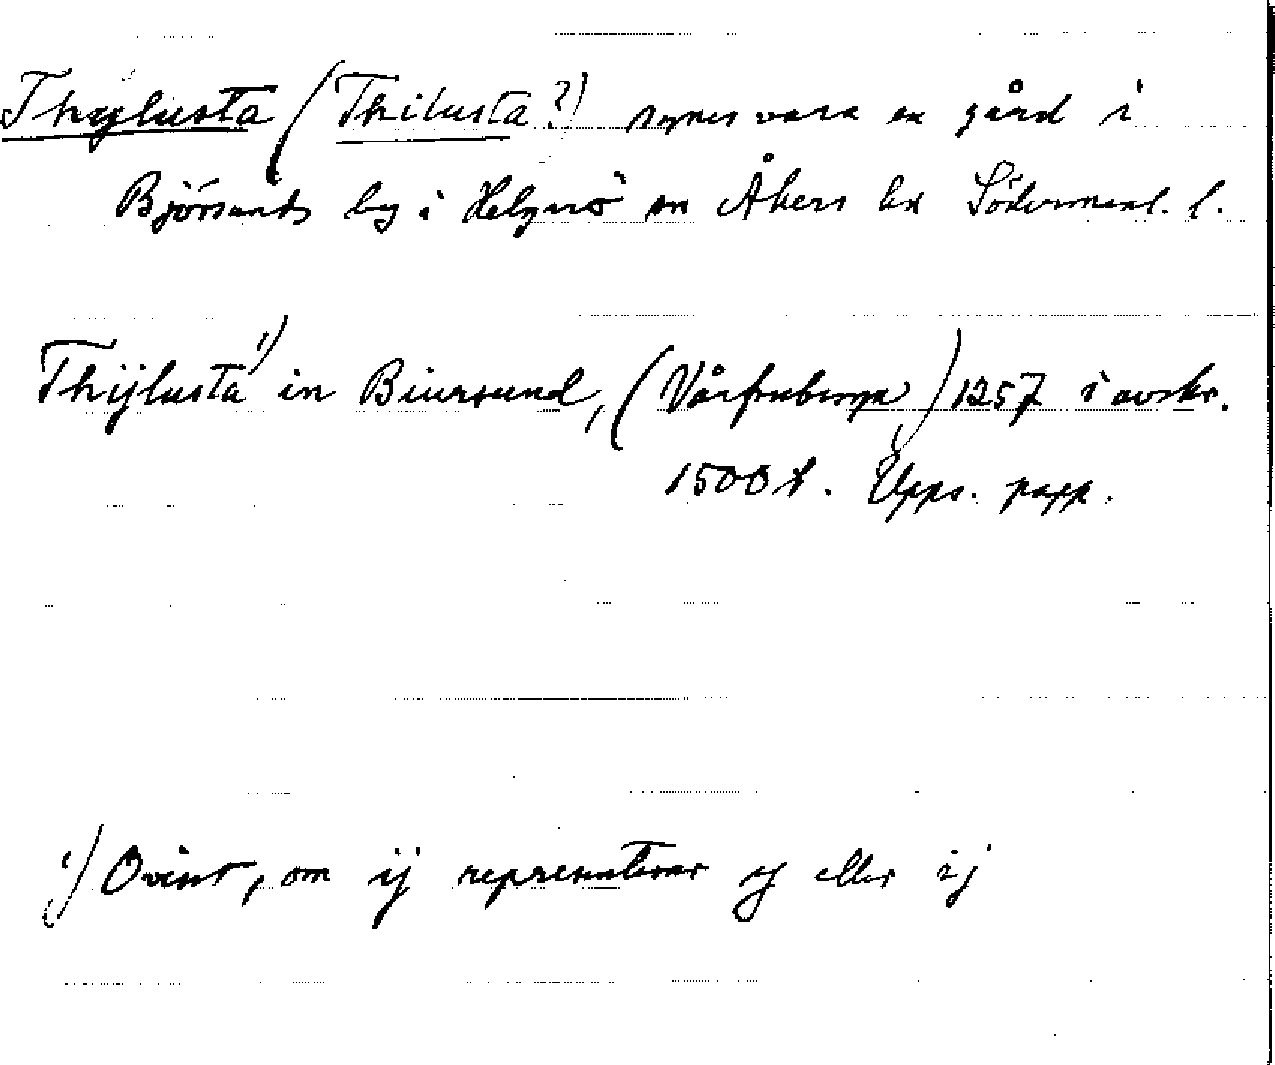 Thylusta (Thilusta?) synes vara en gård i
Björsunds by i Helgarö sn Åkers hd Södermanl. l.
Thijlusta ¹) in Biursund, (Vårfruberga) 1257 i avskr.
1500 t. Upps. papp.
¹) Ovisst, om ij representerar y eller ij